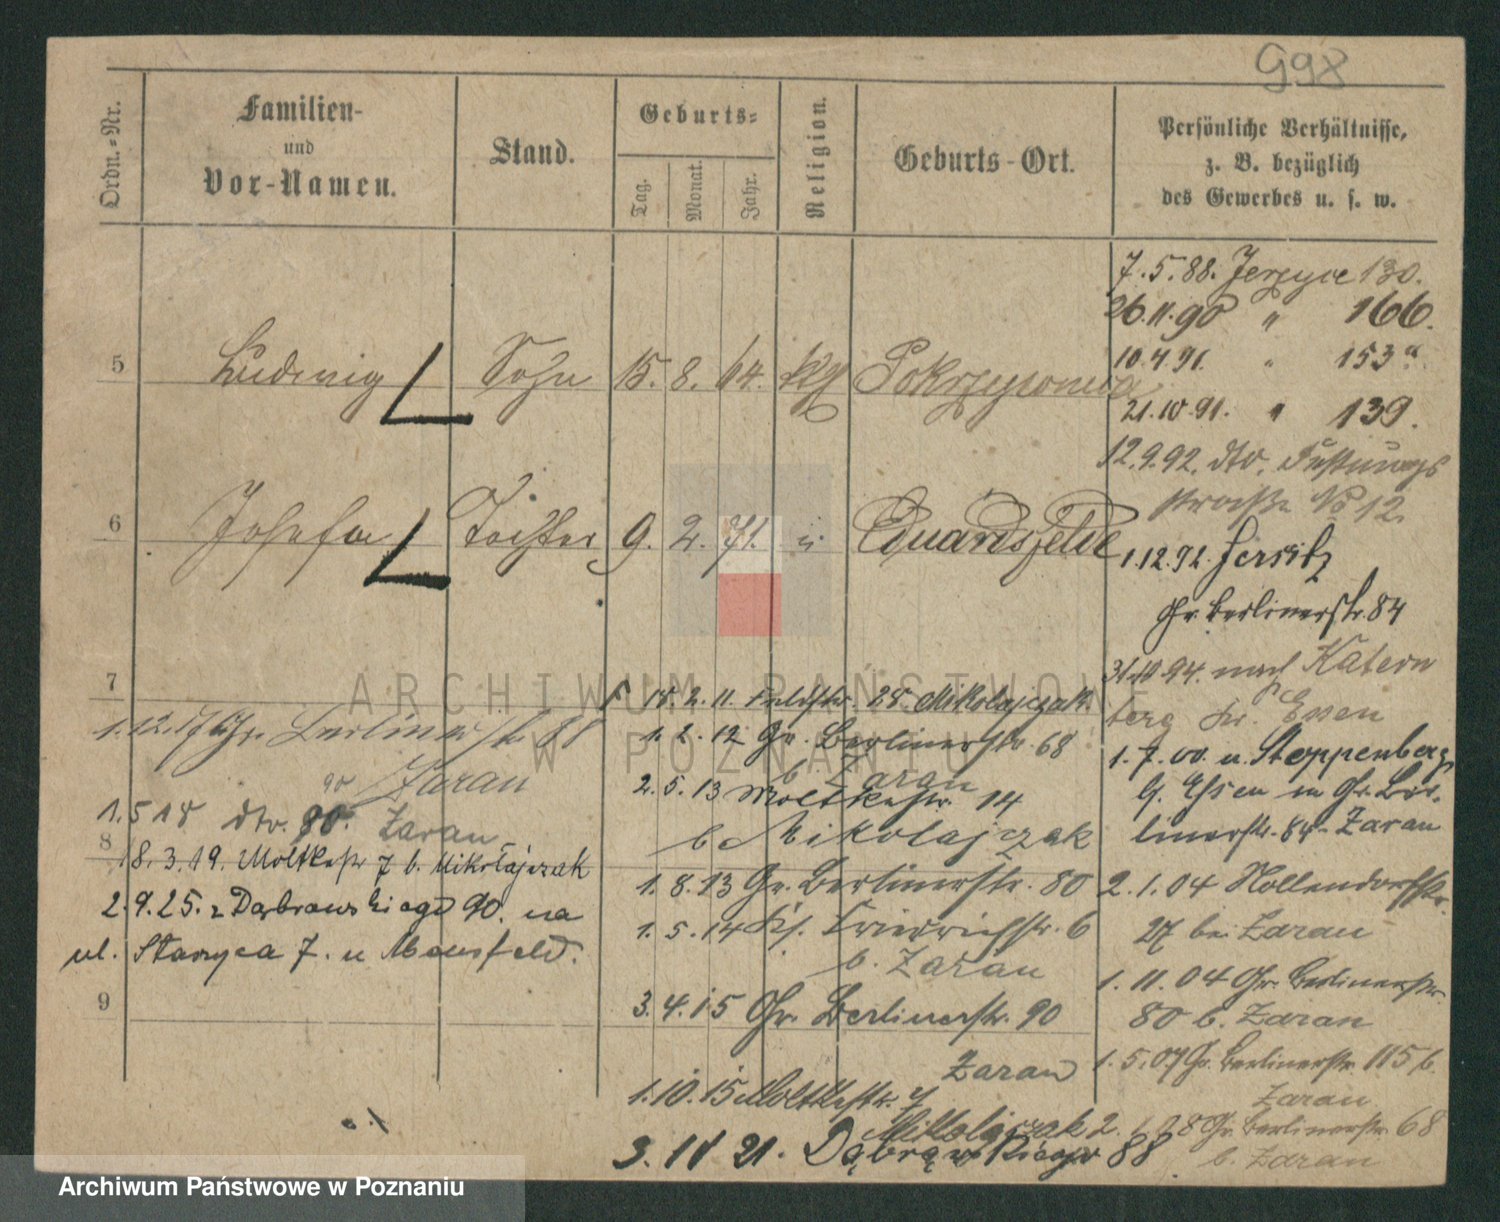 998
Ordn.-Nr.
Familien-
und
Vor-Namen.
Stand.
Geburts-
Tag.
Monat.
Jahr.
Religion.
Geburts-Ort.
Persönliche Verhältnisse,
z. B. bezüglich
des Gewerbes u. s. w.
7.5.88. Jerzyce 130.
26.11.90 " 166.
5 Ludwig Sohn 15. 8. 64. Pokrzywnica
10.4.91. " 153a
21.10.91. " 139.
12.9.92. dto. Festungs
straße No 12.
6 Josefa Tochter 9. 2. 71. " Eduardsfelde
1.12.92. Jersitz
Gr. Berlinerstr. 84
31.10.94. nach Katern
berg Kr. Essen
1.7.00. v. Stoppenberg
b. Essen in Gr. Ber-
linerstr. 84 Zaran
2.1.04 Nollendorfstr.
27 bei Zaran
1.11.04 Gr. Berlinerstr.
80 b. Zaran
1.5.07 Gr. Berlinerstr. 115 b.
Zaran
2. 1.08 Gr. Berlinerstr. 68
b. Zaran
7
18.2.11. 28. Mikolajczak.
1.2.12 Gr. Berlinerstr. 68
b. Zaran
2.5.13 Moltkestr. 14
b Mikolajczak
1.8.13 Gr. Berlinerstr. 80
1.5.14 Friedrichstr. 6
b. Zaran
3.4.15 Gr. Berlinerstr. 90
Zaran
1.10.15 Moltkestr. 7
Mikolajczak
3.11 21. Dąbrowskiego 88
1.12.17 Gr. Berlinerstr. 88
Zaran
90
1.5 18 dto. 80. Zaran
8
18.3.19. Moltkestr 7 b. Mikołajczak
2.9.25. z Dąbrowskiego 90. na
ul. Staszyca 7. u Mansfeld.
9
ARCHIWUM PAŃSTWOWE
W POZNANIU
Archiwum Państwowe w Poznaniu